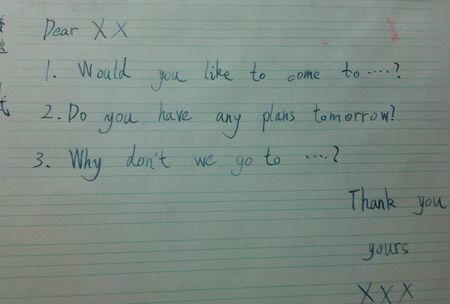 Dear XX
1. Would you like to come to ....?
2. Do you have any plans tomorrow?
3. Why don't we go to ....?
Thank you
yours
XXX